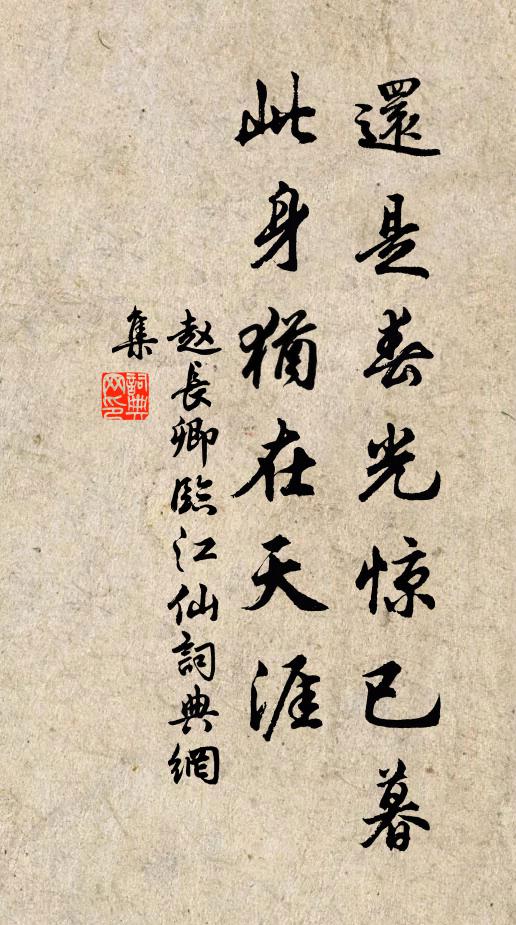 還是春光惊已暮
此身犹在天涯
赵長卿臨江仙詞典網
集
詞典网印